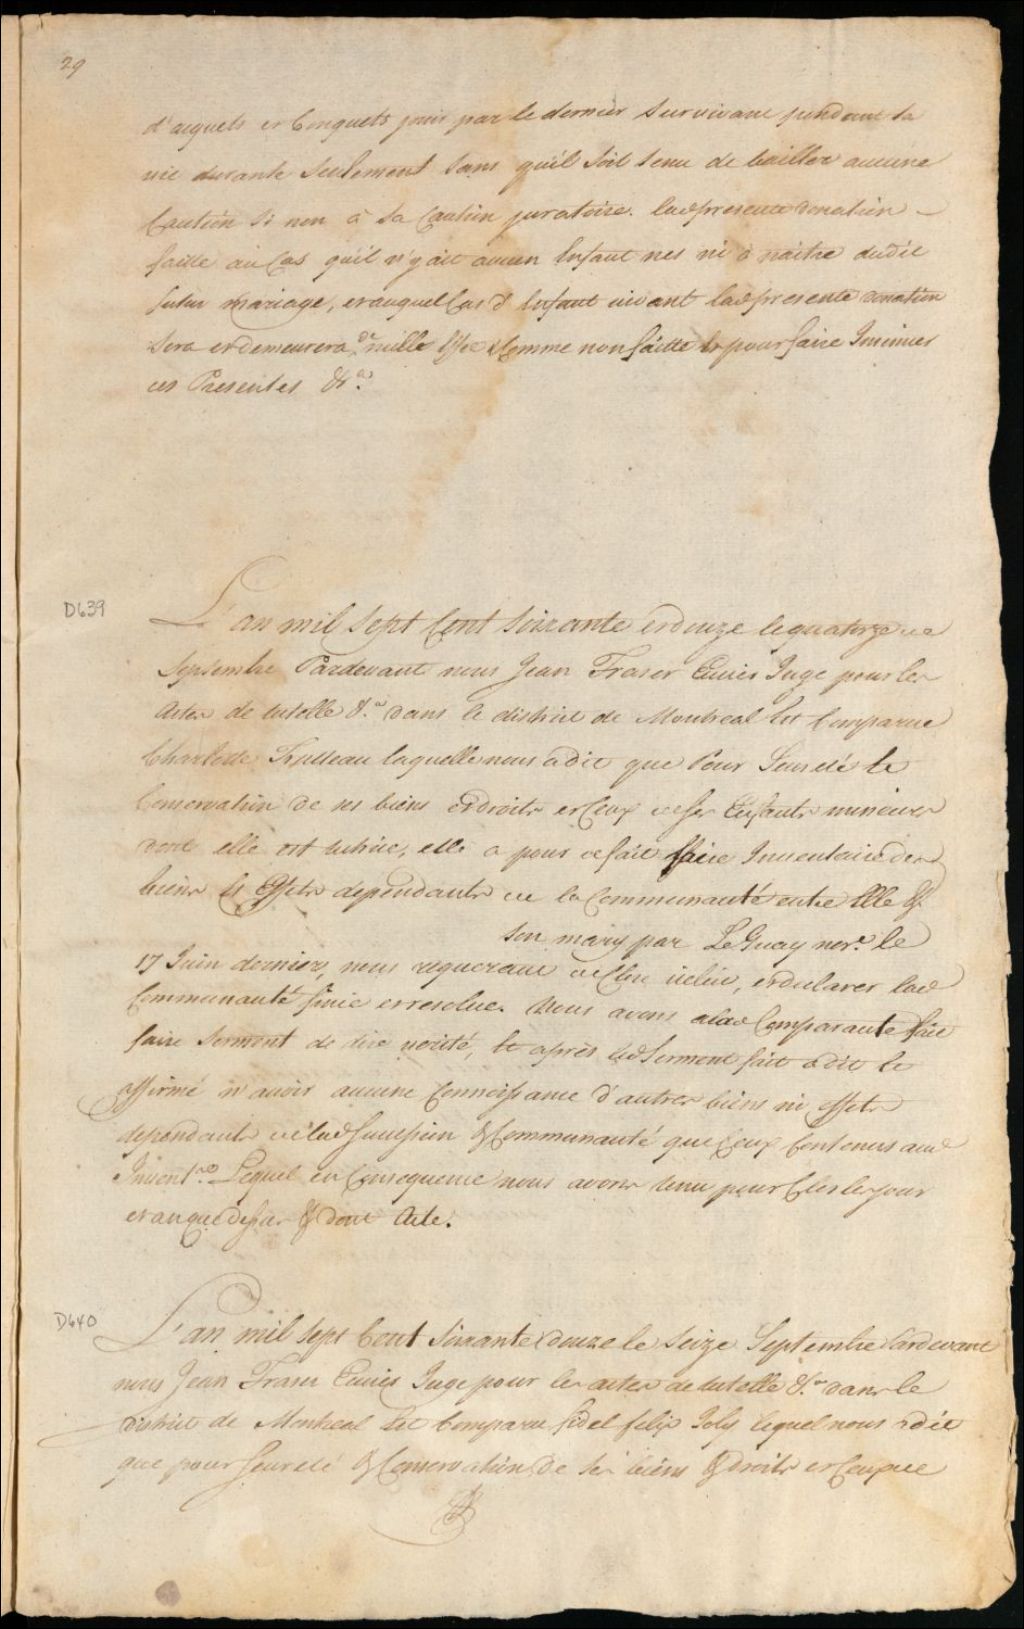 29
d'acquets et Conquets jouir par le dernier Survivant pendant sa
vie durante Seulement Sans qu'il soit tenu de bailler aucune
Caution Si non à Sa Caution juratoire. lad presente donation
faitte au Cas qu'il n'y ait aucun Enfant nes ni à naitre dudit
futur mariage, et auquel Cas d'Enfant vivant lad presente donation
Sera et demeurera de nulle Effet & Comme non faitte Et pour faire Insinuer
ces Presentes &ca.
D639
L'an mil Sept Cent Soixante et douze le quatorze de
Septembre Pardevant nous Jean Fraser Ecuier Juge pour les
Actes de tutelle &a. dans le district de Montreal Est Comparue
Charlotte Trutteau laquelle nous a dit que Pour Seureté Et
Conservation de ses biens et droits et Ceux de Ses Enfants mineurs
dont elle est tutrice, elle a pour ce fait faire Inventaire des
biens Et Effets dependants de la Communauté entre Elle &
Son mary par LeGuay nore. le
17 Juin dernier, nous requerant de Clore icelui, et declarer lad
Communauté finie et resolue. Nous avons a lad Comparante fait
faire Serment de dire verité, Et après led Serment fait a dit Et
affirmé n'avoir aucune Connoissance d'autres biens ni effets
dependants de lad Succession & Communauté que Ceux Contenus aud
Inventre. Lequel en Consequence nous avons tenu pour Clos les jour
et an que dessus & dont Acte.
D640
L'an mil Sept Cent Soixante & douze le Seize Septembre Pardevant
nous Jean Fraser Ecuier Juge pour les actes de tutelle &a. dans le
District de Montreal Est Comparu fidel felix Joly lequel nous a dit
que pour Seureté & Conservation de Ses biens & droits et Ceux de